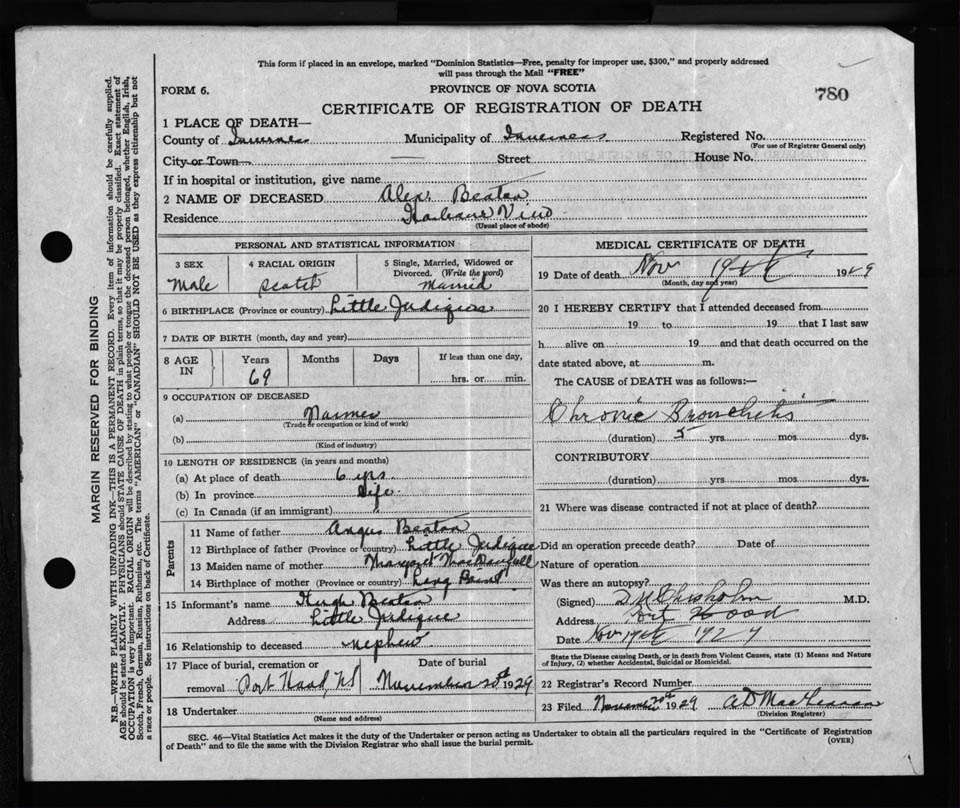 This form if placed in an envelope, marked "Dominion Statistics—Free, penalty for improper use, $300," and properly addressed
will pass through the Mail "FREE"
FORM 6.
PROVINCE OF NOVA SCOTIA
780
CERTIFICATE OF REGISTRATION OF DEATH
1 PLACE OF DEATH—
County of Inverness Municipality of Inverness Registered No.
(For use of Registrar General only)
City or Town — Street House No.
If in hospital or institution, give name
2 NAME OF DECEASED Alex. Beaton
Residence Harbour View
(Usual place of abode)
PERSONAL AND STATISTICAL INFORMATION
3 SEX 4 RACIAL ORIGIN 5 Single, Married, Widowed or
Divorced. (Write the word)
Male Scotch Married
6 BIRTHPLACE (Province or country) Little Judique
7 DATE OF BIRTH (month, day and year)
8 AGE IN Years Months Days If less than one day,
69 hrs. or min.
9 OCCUPATION OF DECEASED
(a) Farmer
(Trade or occupation or kind of work)
(b)
(Kind of industry)
10 LENGTH OF RESIDENCE (in years and months)
(a) At place of death 6 yrs.
(b) In province Life.
(c) In Canada (if an immigrant) "
Parents
11 Name of father Angus Beaton
12 Birthplace of father (Province or country) Little Judique
13 Maiden name of mother Margaret MacDougall
14 Birthplace of mother (Province or country) Long Point
15 Informant's name Hugh Beaton
Address Little Judique
16 Relationship to deceased nephew
17 Place of burial, cremation or Date of burial
removal Port Hood, NS November 20st 1929
18 Undertaker
(Name and address)
MEDICAL CERTIFICATE OF DEATH
19 Date of death Nov 19th 1929
(Month, day and year)
20 I HEREBY CERTIFY that I attended deceased from
19 to 19 that I last saw
h alive on 19 and that death occurred on the
date stated above, at m.
The CAUSE of DEATH was as follows:—
Chronic Bronchitis
(duration) 5 yrs. mos. dys.
CONTRIBUTORY
(duration) yrs. mos. dys.
21 Where was disease contracted if not at place of death?
Did an operation precede death? Date of
Nature of operation
Was there an autopsy?
(Signed) D N Chisholm M.D.
Address Port Hood
Date Nov 19th 1929
State the Disease causing Death, or in death from Violent Causes, state (1) Means and Nature
of Injury, (2) whether Accidental, Suicidal or Homicidal.
22 Registrar's Record Number
23 Filed November 20st 1929 A D MacLennan
(Division Registrar)
SEC. 46—Vital Statistics Act makes it the duty of the Undertaker or person acting as Undertaker to obtain all the particulars required in the "Certificate of Registration
of Death" and to file the same with the Division Registrar who shall issue the burial permit.
(OVER)
MARGIN RESERVED FOR BINDING
N.B.—WRITE PLAINLY WITH UNFADING INK—THIS IS A PERMANENT RECORD. Every item of information should be carefully supplied.
AGE should be stated EXACTLY. PHYSICIANS should STATE CAUSE OF DEATH in plain terms, so that it may be properly classified. Exact statement of
OCCUPATION is very important. RACIAL ORIGIN will be described by stating to what people or tongue the deceased person belonged, whether English, Irish,
Scotch, French, German, Russian, Ruthenian, etc. The terms "AMERICAN" or "CANADIAN" SHOULD NOT BE USED as they express citizenship but not
a race or people. See instructions on back of Certificate.